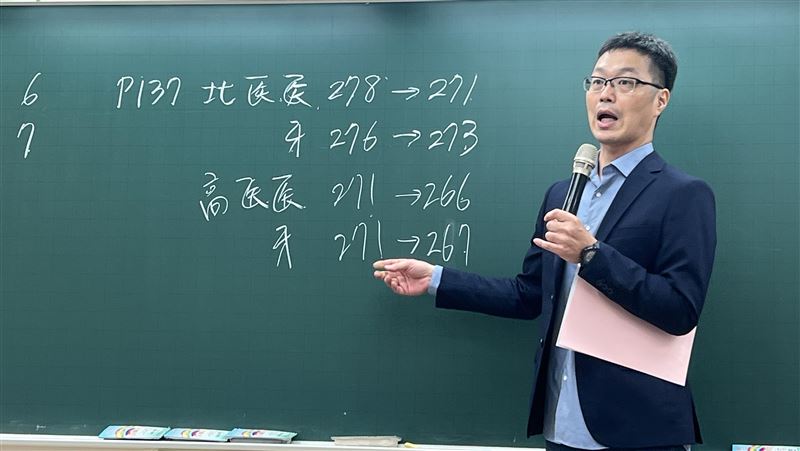 6 P137 北医医 278→271
7 牙 276→273
高医医 271→266
牙 271→267